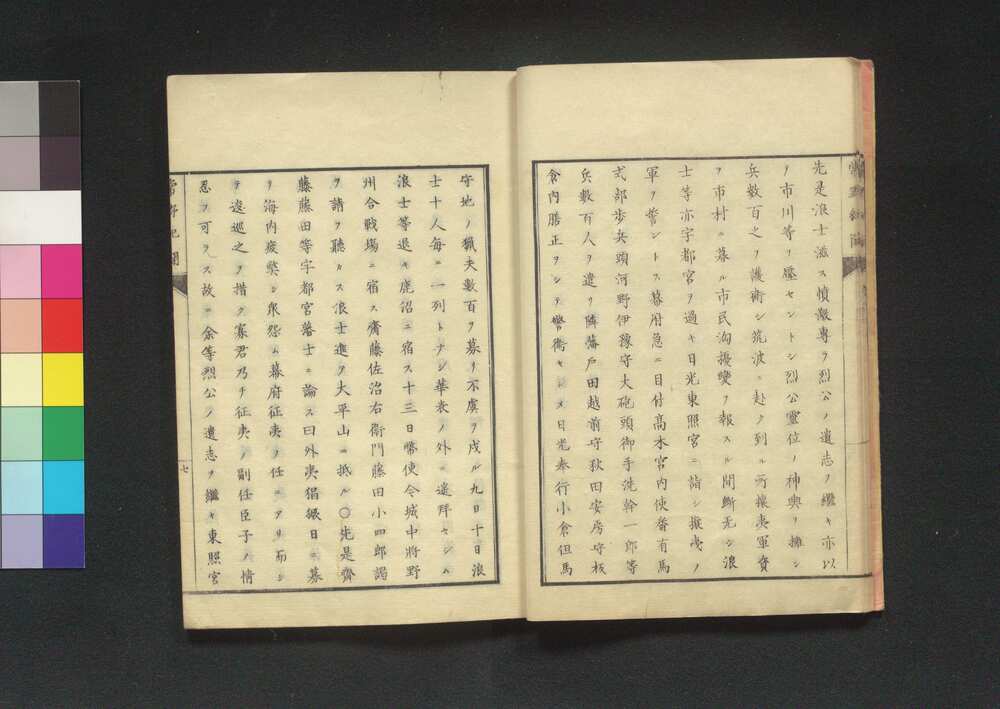 先是浪士滋ス憤激専ヲ烈公ノ遺志ヲ継キ亦以
ヲ市川等ヲ壓セントシ烈公靈位ノ神輿ヲ擁シ
兵数百之ヲ護衛シ筑波ニ赴ク到ル所攘夷軍資
ヲ市村ニ募ル市民洶擾變ヲ報スル間断无シ浪
士等亦宇都宮ヲ過キ日光東照宮ニ詣シ攘夷ノ
軍ヲ誓ントス幕府急ニ目付高木宮内使番有馬
式部歩兵頭河野伊豫守大砲頭御手洗幹一郎等
兵数百人ヲ遣リ隣藩戸田越前守秋田安房守板
倉内膳正ヲシテ警衛セシメ日光奉行小倉但馬
守地ノ猟夫数百ヲ募リ不虞ヲ戌ル九日十日浪
士十人毎ニ一列トナシ華表ノ外ニ遥拜セシム
浪士等退キ鹿沼ニ宿ス十三日幣使今城中將野
州合戦場ニ宿ス齊藤佐治右衛門藤田小四郎謁
ヲ請ヲ聽カス浪士進ク大平山ニ抵ル〇先是齊
藤藤田等宇都宮藩士ニ諭ス曰外夷猖獗日ニ募
リ海内疲弊シ衆怨ム幕府征夷ノ任ニアリ而シ
テ逡巡之ヲ措ク寡君乃チ征夷ノ副任臣子ノ情
忍ヲ可ラス故ニ余等烈公ノ遺志ヲ継キ東照宮
七